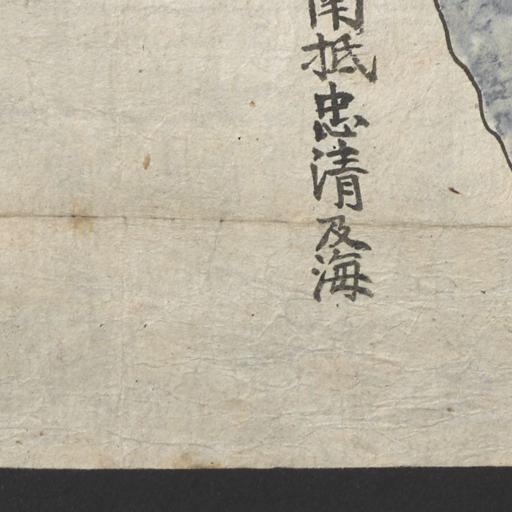 南抵忠清及海